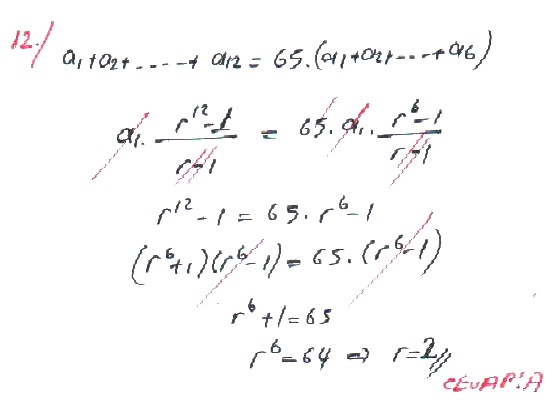 12.)
a1+a2+.....+ a12 = 65.(a1+a2+...+a6)
a1. r^12-1/r-1 = 65.a1. r^6-1/r-1
r^12-1 = 65.r^6-1
(r^6+1)(r^6-1) = 65.(r^6-1)
r^6+1=65
r^6=64 ⇒ r=2//
CEVAP:A